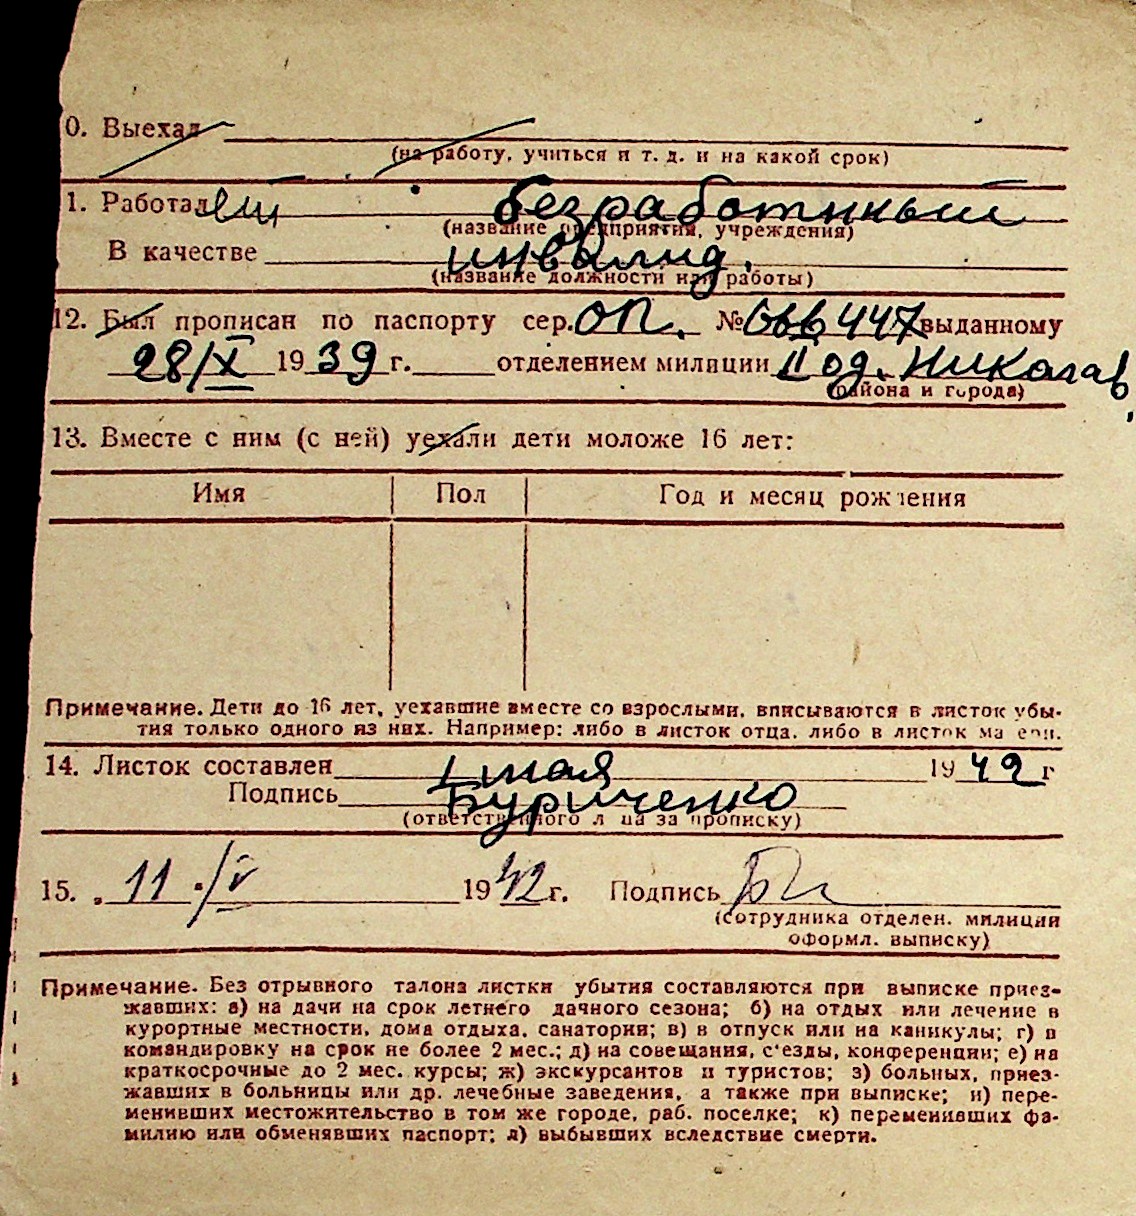 0. Выехал
(на работу, учиться и т. д. и на какой срок)
1. Работал безработнный
(название предприятия, учреждения)
В качестве инвалид.
(название должности или работы)
12. Был прописан по паспорту сер. ОП. № 447 выданному
28/X 1939 г. отделением милиции II од. Николаев,
(района и города)
13. Вместе с ним (с ней) уехали дети моложе 16 лет:
Имя Пол Год и месяц рождения
Примечание. Дети до 16 лет, уехавшие вместе со взрослыми, вписываются в листок убы-
тия только одного из них. Например: либо в листок отца, либо в листок матери.
14. Листок составлен 1 мая 1942 г
Подпись Буриченко
(ответственного лица за прописку)
15. „ 11 ./V 1942 г. Подпись
(сотрудника отделен. милиции
оформл. выписку)
Примечание. Без отрывного талона листки убытия составляются при выписке приез-
жавших: а) на дачи на срок летнего дачного сезона; б) на отдых или лечение в
курортные местности, дома отдыха, санатории; в) в отпуск или на каникулы; г) в
командировку на срок не более 2 мес.; д) на совещания, с'езды, конференции; е) на
краткосрочные до 2 мес. курсы; ж) экскурсантов и туристов; з) больных, приез-
жавших в больницы или др. лечебные заведения, а также при выписке; и) пере-
менивших местожительство в том же городе, раб. поселке; к) переменивших фа-
милию или обменявших паспорт; л) выбывших вследствие смерти.